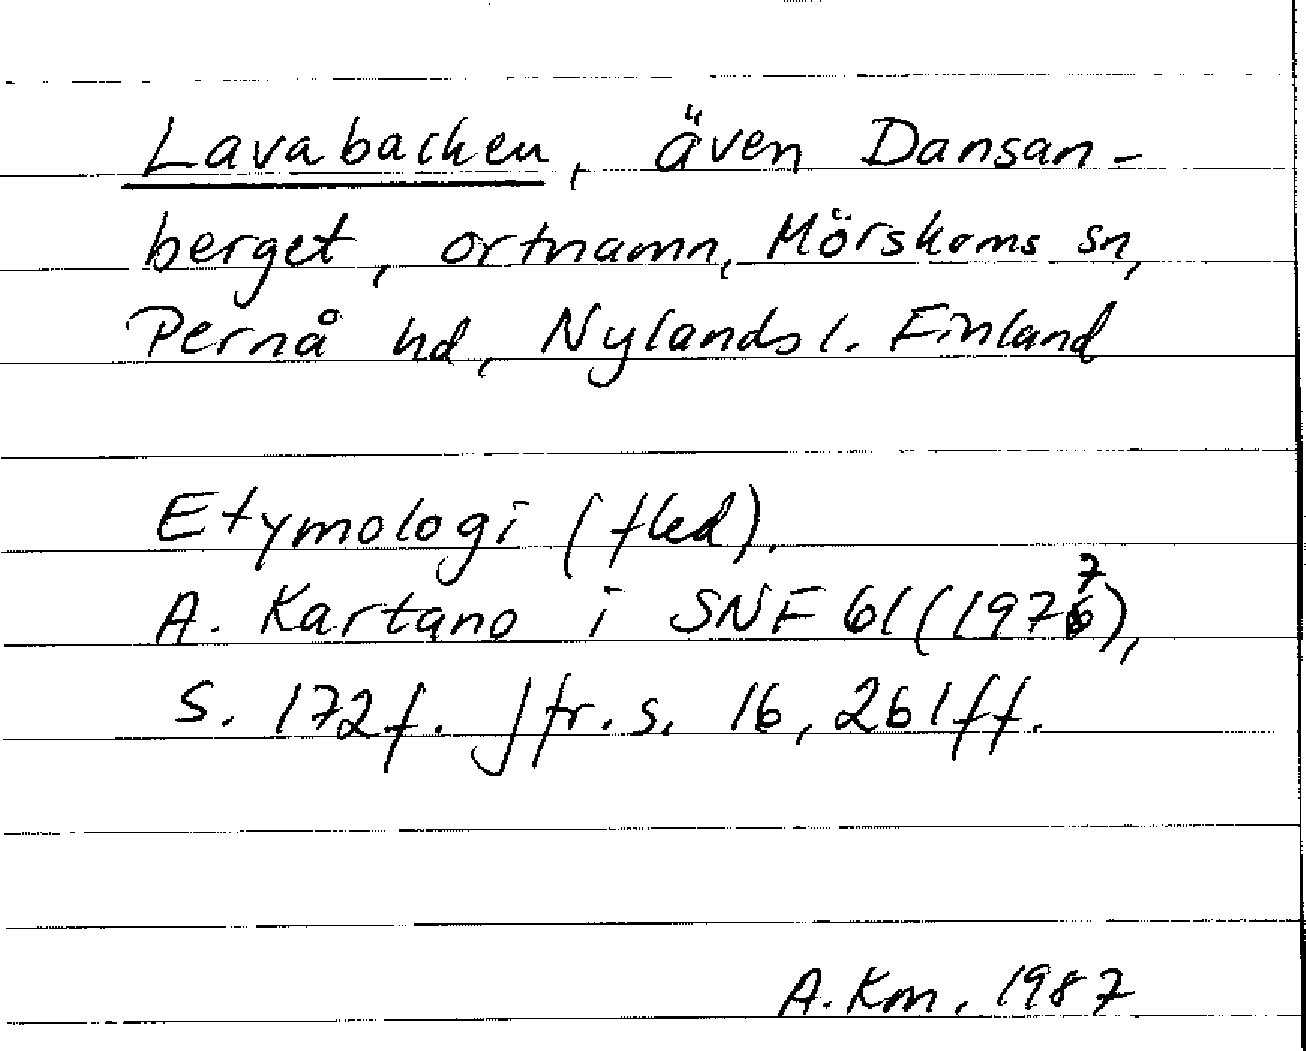 Lavabacken, även Dansan-
berget, ortnamn, Mörskoms sn,
Pernå hd, Nylands l. Finland
Etymologi (fled).
A. Kartano i SNF 61 (1977),
s. 172f. Jfr. s. 16, 261ff.
A. Km. 1987